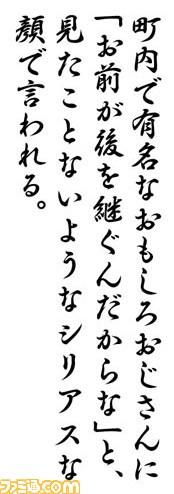 町内で有名なおもしろおじさんに
「お前が後を継ぐんだからな」と、
見たことないようなシリアスな
顔で言われる。
ファミ通.com